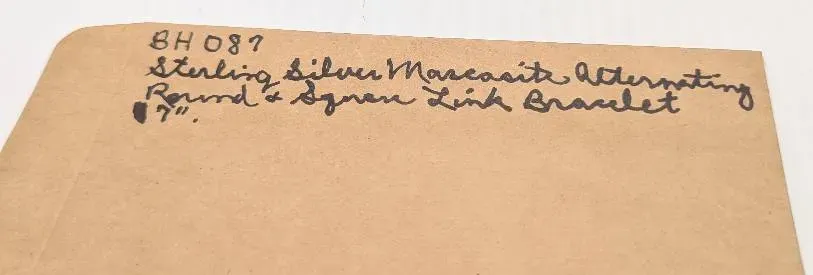 BH 087
Sterling Silver Marcasite Alternating
Round & Square Link Bracelet
7".